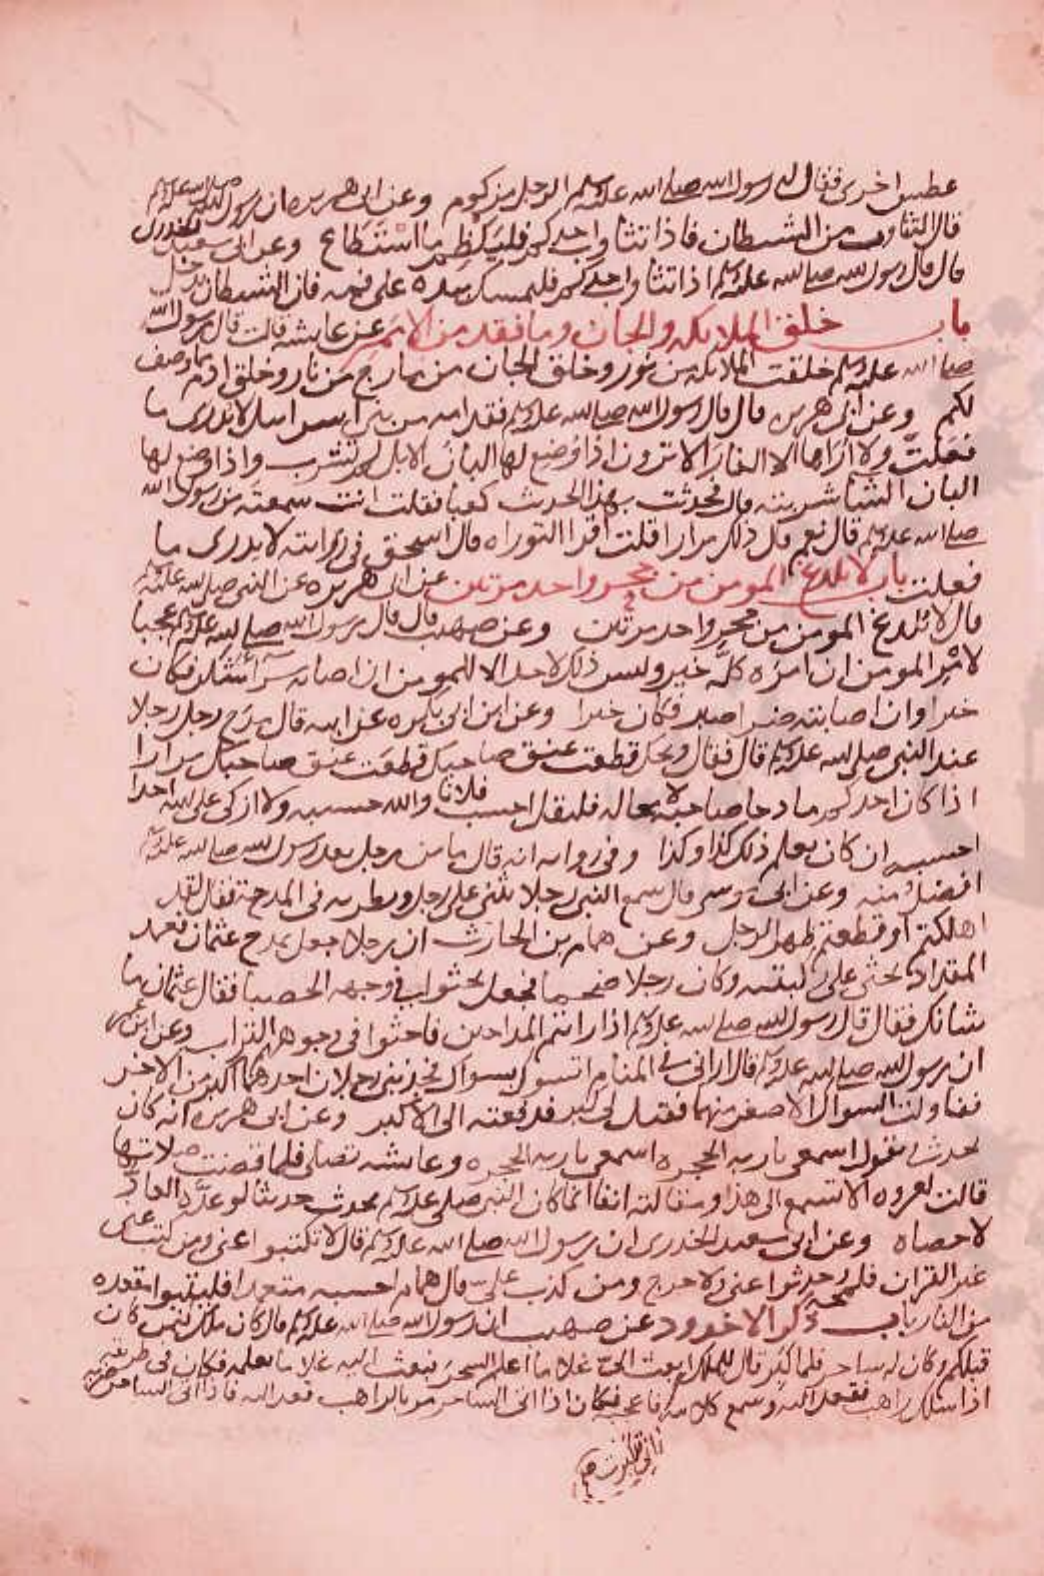 عطس اخرى فقال له رسول الله صلى الله عليه وسلم الرجل مزكوم وعن ابى هريره ان رسول الله صلى الله عليه وسلم
قال التثاوب من الشيطان فاذا تثاوب احدكم فليكظم ما استطاع وعن ابى سعيد الخدرى
قال قال رسول الله صلى الله عليه وسلم اذا تثاوب احدكم فليمسك بيده على فمه فان الشيطان يدخل
باب خلق الملايكه والجان وما فقد من الامم عن عايشه قالت قال رسول الله
صلى الله عليه وسلم خلقت الملايكه من نور وخلق الجان من مارج من نار وخلق ادم مما وصف
لكم وعن ابى هريره قال قال رسول الله صلى الله عليه وسلم فقد امه من بنى اسرايل لا يدرى ما
فعلت ولا اراها الا الفار الا ترون اذا وضع لها البان الابل لم تشرب واذا وضع لها
البان الشا شربته قال فحدثت بهذا الحديث كعبا فقلت انت سمعته من رسول الله
صلى الله عليه وسلم قال نعم قال ذلك مرارا قلت اقرا التوراه قال اسحق فى روايته لا يدرى ما
فعلت باب لا يلدغ المومن من جحر واحد مرتين عن ابى هريره عن النبى صلى الله عليه وسلم
قال لا يلدغ المومن من جحر واحد مرتين وعن صهيب قال قال رسول الله صلى الله عليه وسلم عجبا
لامر المومن ان امره كله خير وليس ذلك لاحد الا للمومن ان اصابته سرآ شكر فكان
خيرا وان اصابته ضرا صبر فكان خيرا وعن ابن ابى بكره عن ابيه قال مدح رجل رجلا
عند النبى صلى الله عليه وسلم قال فقال ويحك قطعت عنق صاحبك قطعت عنق صاحبك مرارا
اذا كان احدكم مادحا صاحبه لا محاله فليقل احسب فلانا والله حسيبه ولا ازكى على الله احدا
احسبه ان كان يعلم ذلك كذا وكذا وفى روايه انه قال ما من رجل بعد رسول الله صلى الله عليه وسلم
افضل منه وعن ابى موسى قال سمع النبى رجلا يثنى على رجل ويطريه فى المدحة فقال لقد
اهلكتم او قطعتم ظهر الرجل وعن همام بن الحارث ان رجلا جعل يمدح عثمان فعمد
المقداد فجثى على ركبتيه وكان رجلا ضخما فجعل يحثوا فى وجهه الحصبا فقال عثمان ما
شانك فقال قال رسول الله صلى الله عليه وسلم اذا رايتم المداحين فاحثوا فى وجوههم التراب وعن ابن عمر
ان رسول الله صلى الله عليه وسلم قال ارانى فى المنام اتسوك بسواك فجذبنى رجلان احدهما اكبر من الاخر
فناولت السواك الاصغر منهما فقيل لى كبر فدفعته الى الاكبر وعن ابى هريره انه كان
يحدث يقول اسمعى يا ربه الحجره اسمعى يا ربه الحجره وعايشه تصلى فلما قضت صلاتها
قالت لعروه الا تسمع الى هذا ومقالته انفا انما كان النبى صلى الله عليه وسلم يحدث حديثا لو عده العاد
لاحصاه وعن ابى سعيد الخدرى ان رسول الله صلى الله عليه وسلم قال لا تكتبوا عنى ومن كتب عنى
غير القران فليمحه وحدثوا عنى ولا حرج ومن كذب على قال همام احسبه متعمدا فليتبوا مقعده
من النار باب ذكر الاخدود عن صهيب ان رسول الله صلى الله عليه وسلم قال كان ملك فيمن كان
قبلكم وكان له ساحر فلما كبر قال للملك ابعث الى غلاما اعلمه السحر فبعث اليه غلاما يعلمه فكان فى طريقه
اذا سلك راهب فقعد اليه وسمع كلامه فاعجبه فكان اذا اتى الساحر مر بالراهب فقعد اليه فاذا اتى الساحر ضربه